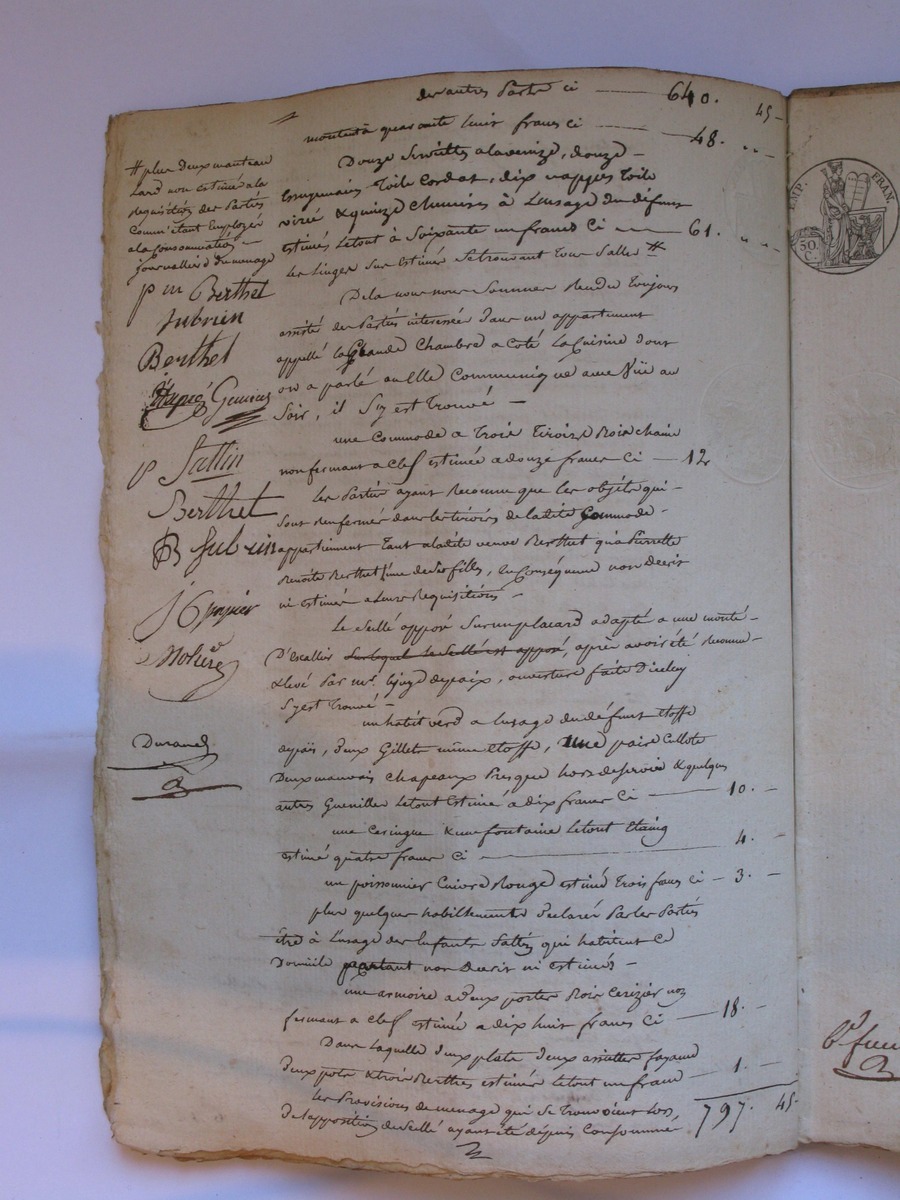 des autres Parts ci — 640. 45 —
montent à quarante huit francs ci — 48. " —
Douze serviettes à la venize, douze —
Toile Cordat, dix nappes Toile
& quinze chemises à L'usage du défunt
estimés Le tout à Soixante un francs Ci — 61. " —
Les linges sus Estimés Se trouvant Tous Salles #
De la nous nous Sommes Rendus Toujours
assisté des Partés interessée dans un appartement
appellé la Grande Chambre a Coté La Cuisine dont
on a parlé au Elle Communique avec Vüe au
Soir, il S'y est Trouvé —
une Commode a Trois Tiroirs Bois chaine
non fermant a Clef estimée a douze francs Ci — 12
Les Partiés ayant Reconnu que les objéts qui —
Sont Renfermés dans les tiroirs de la dite Commode —
appartiennent Tant a la dite veuve Berthet qu'a Pierrette
Benoite Berthet L'une de Ses filles, En Consequence non decrit
ni estimés a Leurs Requisitions —
Le Scellé apposé Sur un placard adapté a une monté
D'Escallier Sur lequel Le Scellé est apposé, après avoir été Reconnu —
& levé Par mr. Le juge de paix, ouverture faite D'iceluy
S'y est Trouvé —
un habit verd a L'usage du défunt étoffe
depaïs, deux Gillets même étoffe, une paire Cullote
Deux mauvais Chapeaux Presque hors de Service & quelques
autres Guenilles Le tout Estimé à dix francs Ci — 10. —
une Ceringue & une fontaine Le tout Etaing
estimé quatre francs Ci — 4. —
un poissonnier Cuivre Rouge estimé Trois francs Ci — 3. —
plus quelques habillements déclarés Par Les Partiés
être à L'usage des Enfants Sattin qui habitent Ce
Domicile partant non Decrit ni estimés —
une armoire a deux portes Bois Cerizier non
fermant a Clef estimée a dix huit francs Ci — 18. —
Dans Laquelle deux plats deux assiettes fayance
deux pots & trois Berthes estimés Le tout un franc — 1. —
Les Provisions de menage qui Se Trouvoient Lors
de L'apposition du Scellé ayant été depuis Consommés
797. 45.
# plus deux manteau
non estimé a la
Requisition des Partiés
Comm'etant Employés
a la Consommation
journalliere du menage
Berthet
Jubrien
Berthet
Sattin
Berthet
Jubrien
Durand
EMP. FRAN.
50 C.